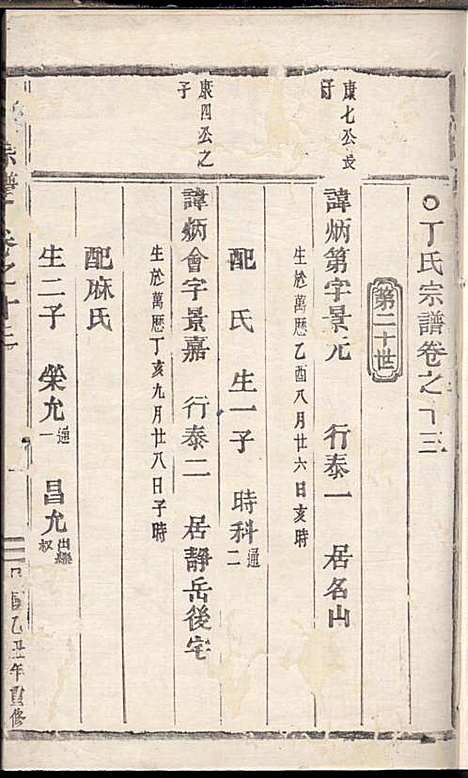 ○丁氏宗譜卷之十三
第二十世
康七公長子
諱炳第字景元 行泰一 居名山
生於萬曆乙酉八月廿六日亥時
配 氏 生一子 時科 通二
康四公之子
諱炳會字景嘉 行泰二 居靜岳後宅
生於萬曆丁亥九月廿八日子時
配麻氏
生二子 榮允 通一 昌允 出繼叔
宗譜 卷之十三
乙丑年重修